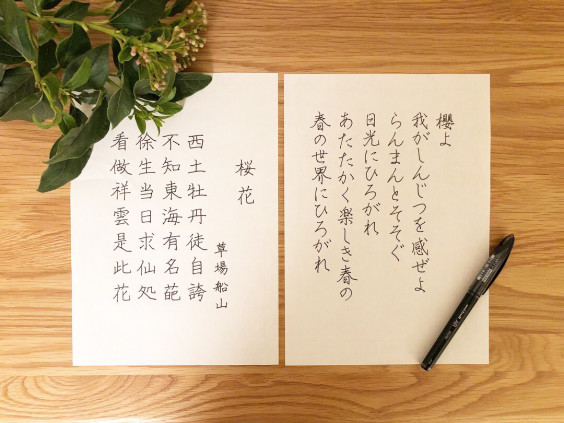 櫻よ
我がしんじつを感ぜよ
らんまんとそそぐ
日光にひろがれ
あたたかく楽しき春の
春の世界にひろがれ
桜花
草場船山
西土牡丹徒自誇
不知東海有名葩
徐生当日求仙処
看做祥雲是此花